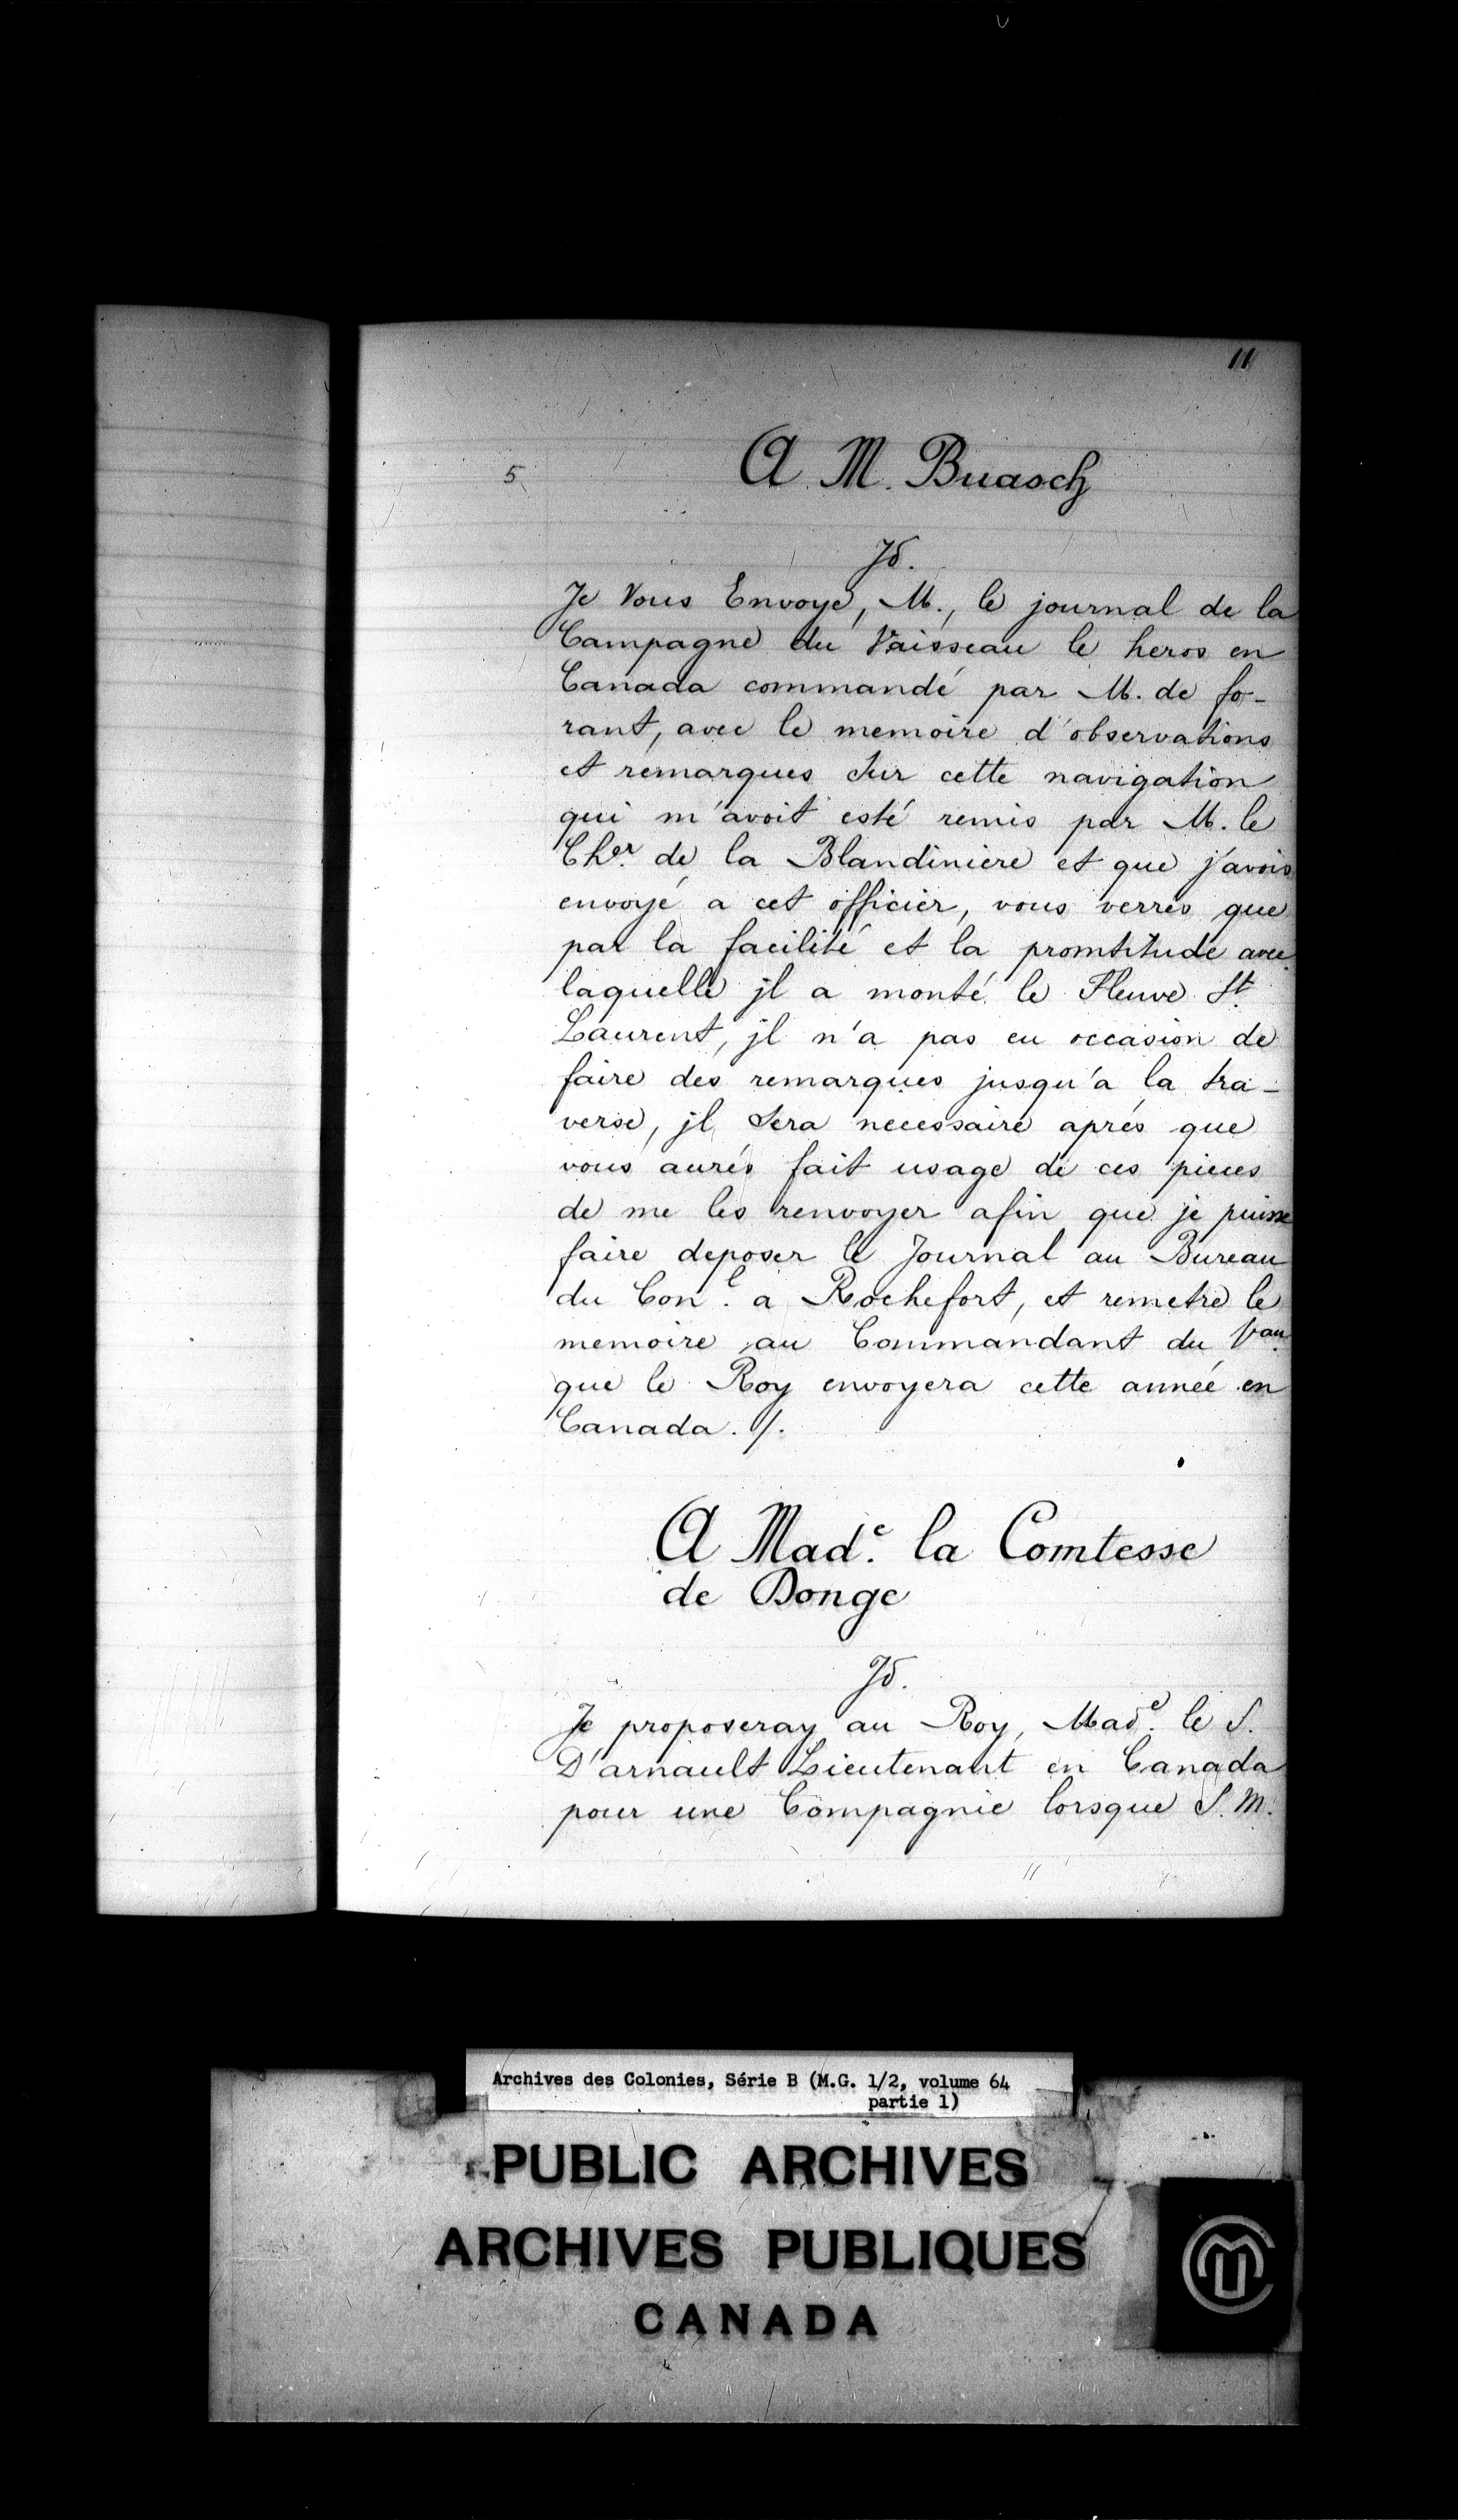 11
5
A M. Buasch
Jd.
Je Vous Envoye, M., le journal de la
Campagne du Vaisseau le heros en
Canada commandé par M. de fo-
rant, avec le memoire d'observations
et remarques Sur cette navigation
qui m'avoit esté remis par M. le
Cher. de la Blandiniere et que j'avois
envoyé a cet officier, vous verrés que
par la facilité et la promtitude avec
laquelle jl a monté le Fleuve St.
Laurent, jl n'a pas eu occasion de
faire des remarques jusqu'a la tra-
verse, jl Sera necessaire aprés que
vous aurés fait usage de ces pieces
de me les renvoyer afin que je puisse
faire deposer le Journal au Bureau
du Conl. a Rochefort, et remetre le
memoire au Commandant du Vau.
que le Roy envoyera cette année en
Canada. /.
A Made. la Comtesse
de Donge
Jd.
Je proposeray au Roy, Made. le S.
D'arnault Lieutenant en Canada
pour une Compagnie lorsque S. M.
Archives des Colonies, Série B (M.G. 1/2, volume 64
partie 1)
PUBLIC ARCHIVES
ARCHIVES PUBLIQUES
CANADA